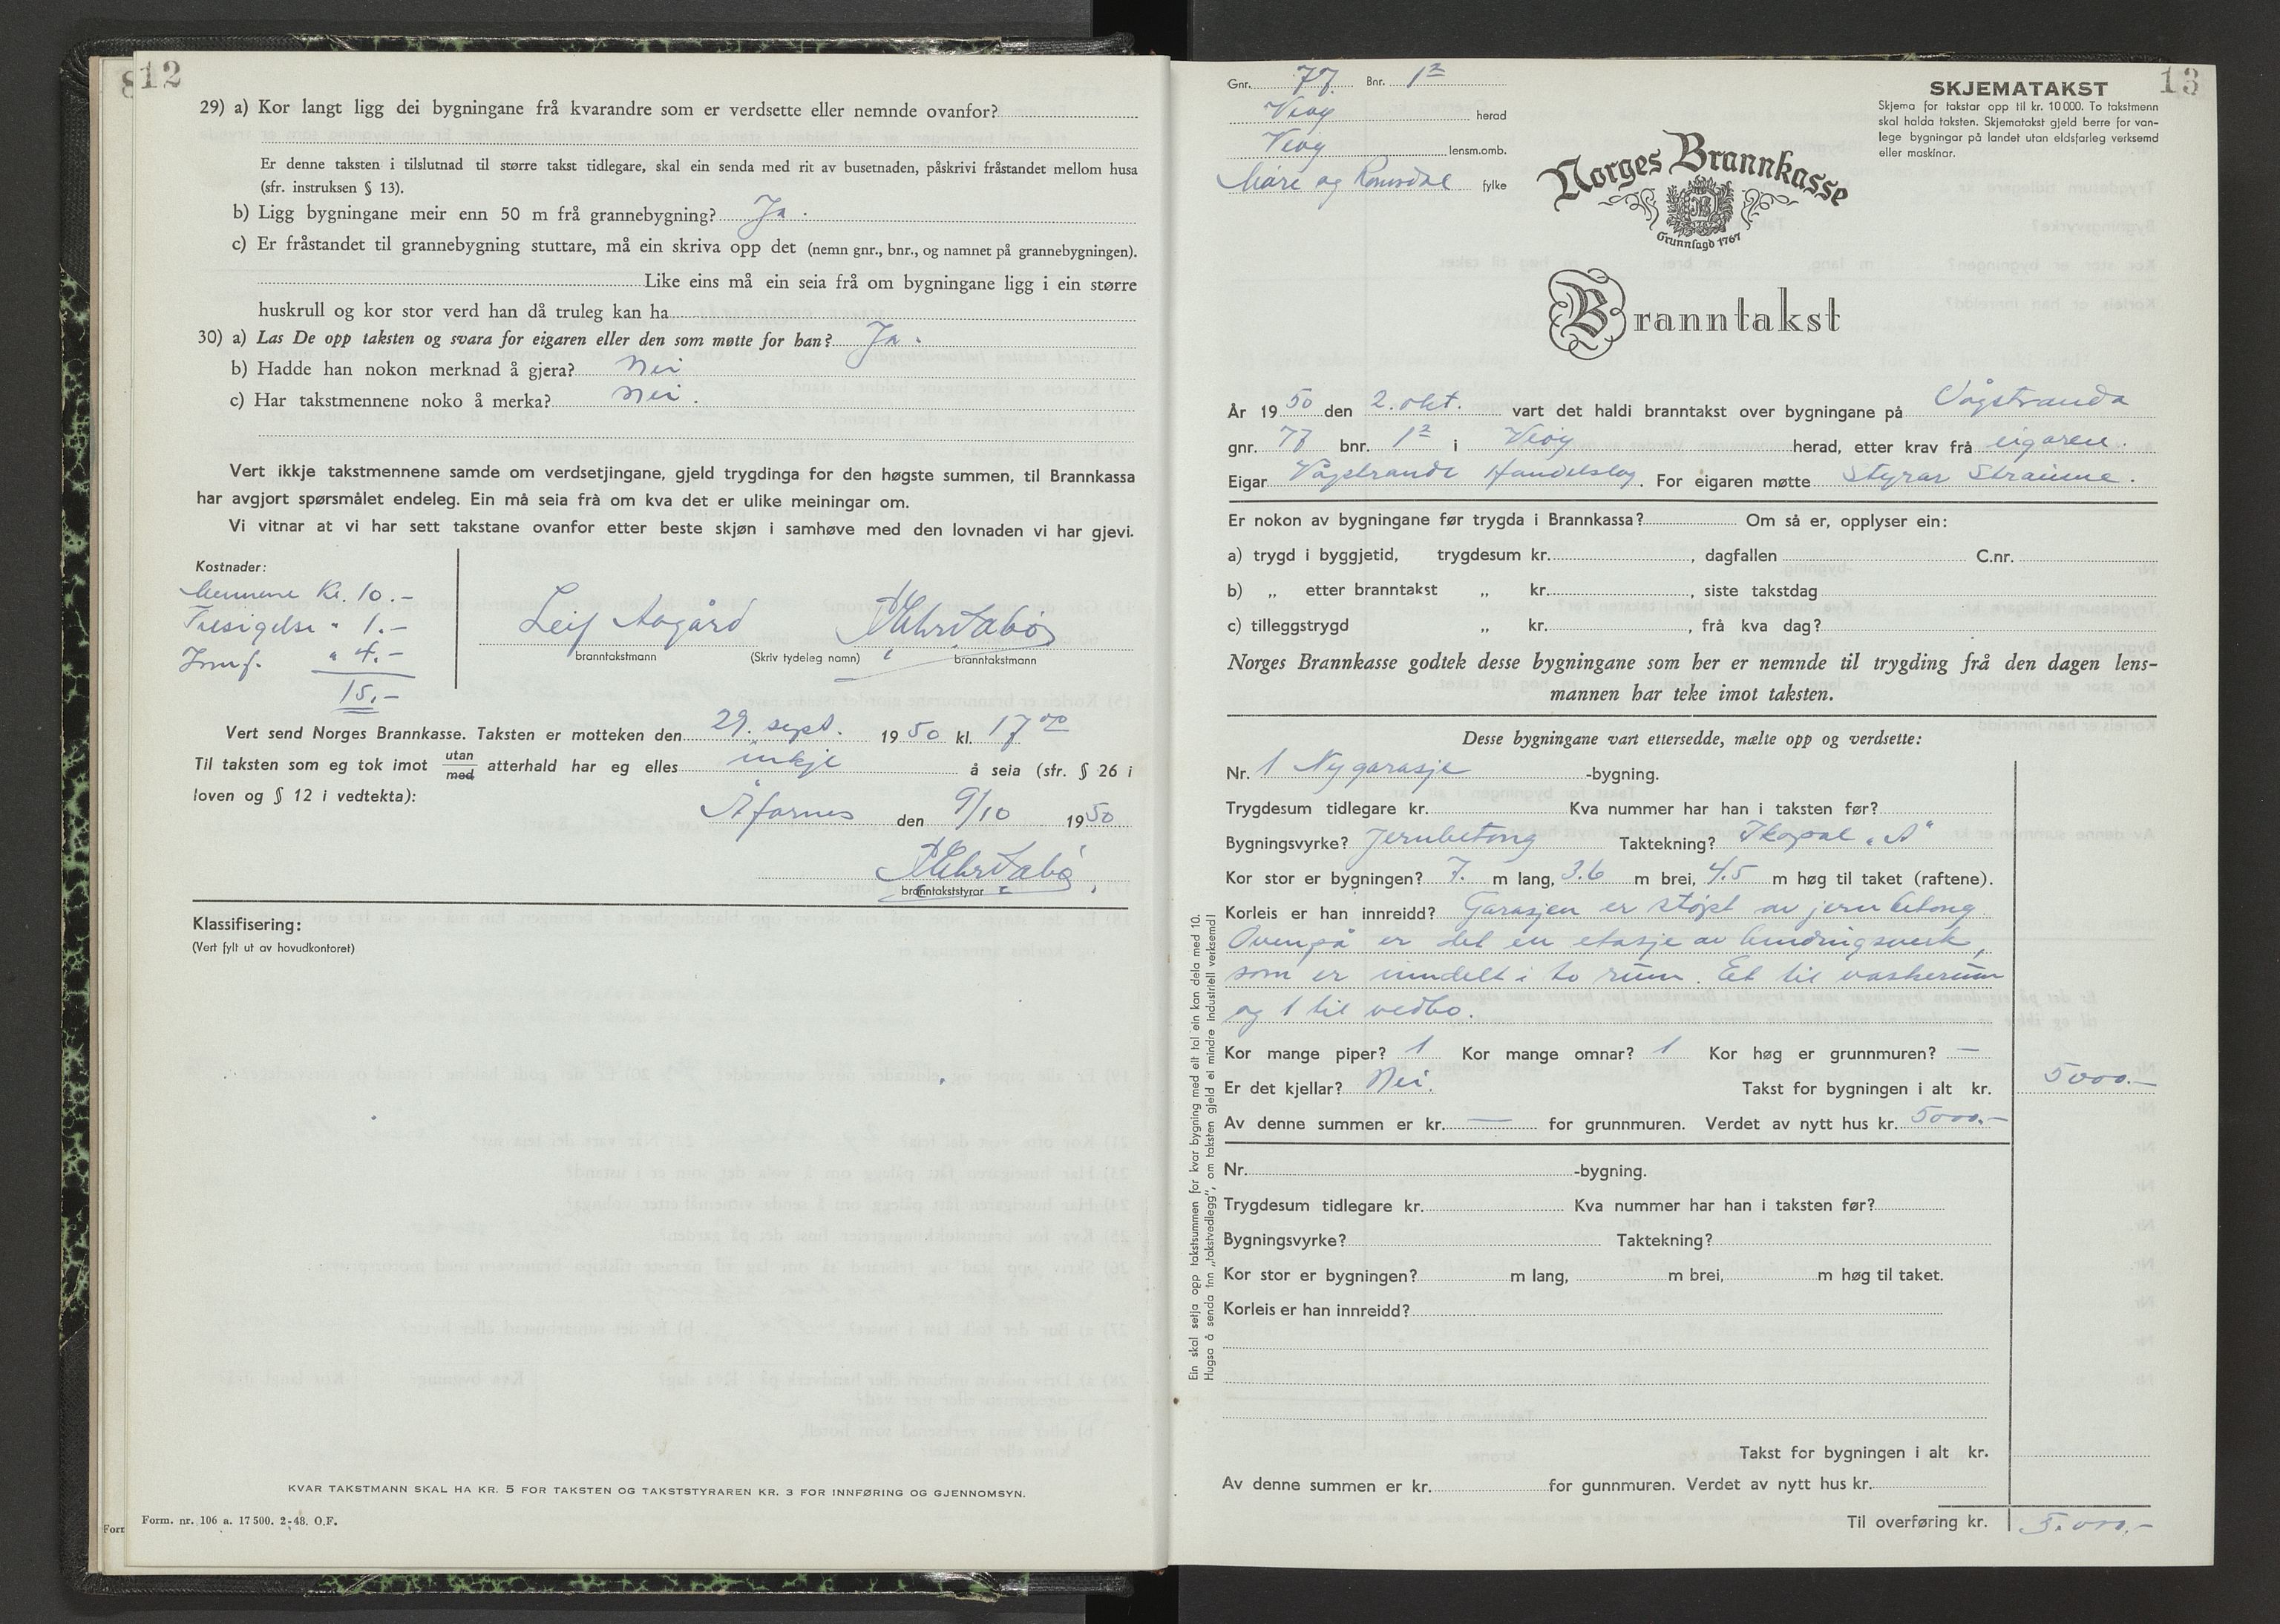 12
29) a) Kor langt ligg dei bygningane frå kvarandre som er verdsette eller nemnde ovanfor?
Er denne taksten i tilslutnad til større takst tidlegare, skal ein senda med rit av busetnaden, påskrivi fråstandet mellom husa
(sfr. instruksen § 13).
b) Ligg bygningane meir enn 50 m frå grannebygning? Ja.
c) Er fråstandet til grannebygning stuttare, må ein skriva opp det (nemn gnr., bnr., og namnet på grannebygningen).
Like eins må ein seia frå om bygningane ligg i ein større
huskrull og kor stor verd han då truleg kan ha
30) a) Las De opp taksten og svara for eigaren eller den som møtte for han? Ja.
b) Hadde han nokon merknad å gjera? Nei
c) Har takstmennene noko å merka? Nei.
Vert ikkje takstmennene samde om verdsetjingane, gjeld trygdinga for den høgste summen, til Brannkassa
har avgjort spørsmålet endeleg. Ein må seia frà om kva det er ulike meiningar om.
Vi vitnar at vi har sett takstane ovanfor etter beste skjøn i samhøve med den lovnaden vi har gjevi.
Kostnader:
Mennene Kr. 10.-
" 1.-
Innf. " 4.-
15.-
Leif Aagård
branntakstmann (Skriv tydeleg namn) branntakstmann
Vert send Norges Brannkasse. Taksten er motteken den 29. sept. 1950 kl. 17 00
Til taksten som eg tok imot utan/med atterhald har eg elles inkje å seia (sfr. § 26 i
loven og § 12 i vedtekta):
Åfarnes den 9/10 1950
branntakststyrar
Klassifisering:
(Vert fylt ut av hovudkontoret)
KVAR TAKSTMANN SKAL HA KR. 5 FOR TAKSTEN OG TAKSTSTYRAREN KR. 3 FOR INNFØRING OG GJENNOMSYN.
Form. nr. 106 a. 17 500. 2-48. O.F.
13
Gnr. 77 Bnr. 1 2
Veøy herad
Veøy lensm.omb.
Møre og Romsdal fylke
SKJEMATAKST
Skjema for takstar opp til kr. 10 000. To takstmenn
skal halda taksten. Skjematakst gjeld berre for van-
lege bygningar på landet utan eldsfarleg verksemd
eller maskinar.
Norges Brannkasse
Grunnlagd 1767
Branntakst
År 1950 den 2. okt. vart det haldi branntakst over bygningane på Vågstranda
gnr. 77 bnr. 1 2 i Veøy herad, etter krav frå eigaren.
Eigar Vågstranda Handelslag. For eigaren møtte Styrar Straume.
Er nokon av bygningane før trygda i Brannkassa? Om så er, opplyser ein:
a) trygd i byggjetid, trygdesum kr. , dagfallen C.nr.
b) „ etter branntakst „ kr. , siste takstdag
c) tilleggstrygd „ kr. , frå kva dag?
Norges Brannkasse godtek desse bygningane som her er nemnde til trygding frå den dagen lens-
mannen har teke imot taksten.
Desse bygningane vart ettersedde, mælte opp og verdsette:
Nr. 1 Ny garasje -bygning.
Trygdesum tidlegare kr. Kva nummer har han i taksten før?
Bygningsvyrke? Jernbetong Taktekning? Ikopal "A"
Kor stor er bygningen? 7. m lang, 3.6 m brei, 4.5 m høg til taket (raftene).
Korleis er han innreidd? Garasjen er støpt av jernbetong.
Ovenpå er det en etasje av bindingsverk,
som er inndelt i to rum. Et til vaskerum
og 1 til vedbo.
Kor mange piper? 1 Kor mange omnar? 1 Kor høg er grunnmuren? —
Er det kjellar? Nei. Takst for bygningen i alt kr. 5000.-
Av denne summen er kr. — for grunnmuren. Verdet av nytt hus kr. 5000.-
Nr. -bygning.
Trygdesum tidlegare kr. Kva nummer har han i taksten før?
Bygningsvyrke? Taktekning?
Kor stor er bygningen? m lang, m brei, m høg til taket.
Korleis er han innreidd?
Takst for bygningen i alt kr.
Av denne summen er kr. for gunnmuren. Verdet av nytt hus kr.
Til overføring kr. 5.000.-
Ein skal setja opp takstsummen for kvar bygning med eit tal ein kan dela med 10.
Hugsa å senda inn „takstvedlegg", om taksten gjeld ei mindre industriell verksemd!